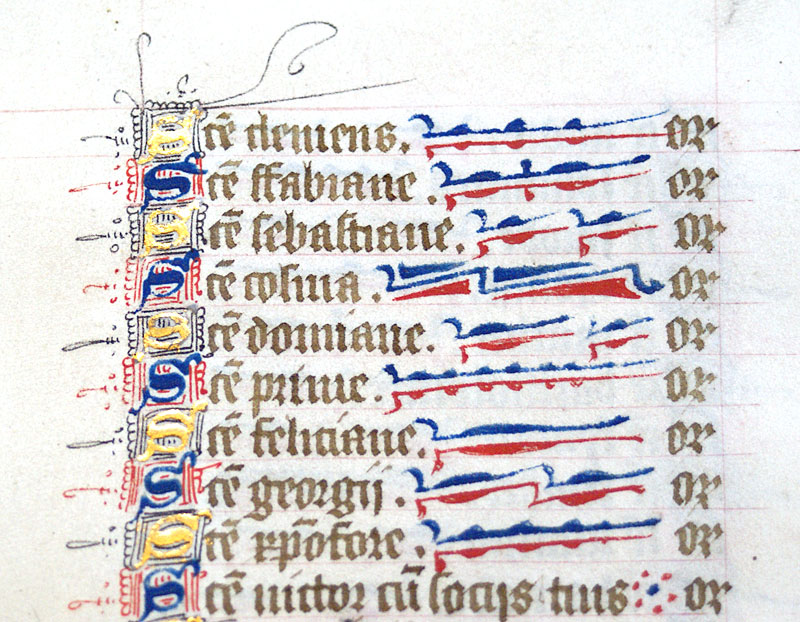 Scē clemens. or
Scē ffabiane. or
Scē sebastiane. or
Scē cosma. or
Scē domiane. or
Scē prime. or
Scē feliciane. or
Scē georgij. or
Scē xp̄ofore. or
Scē uictor cū socijs tuis or